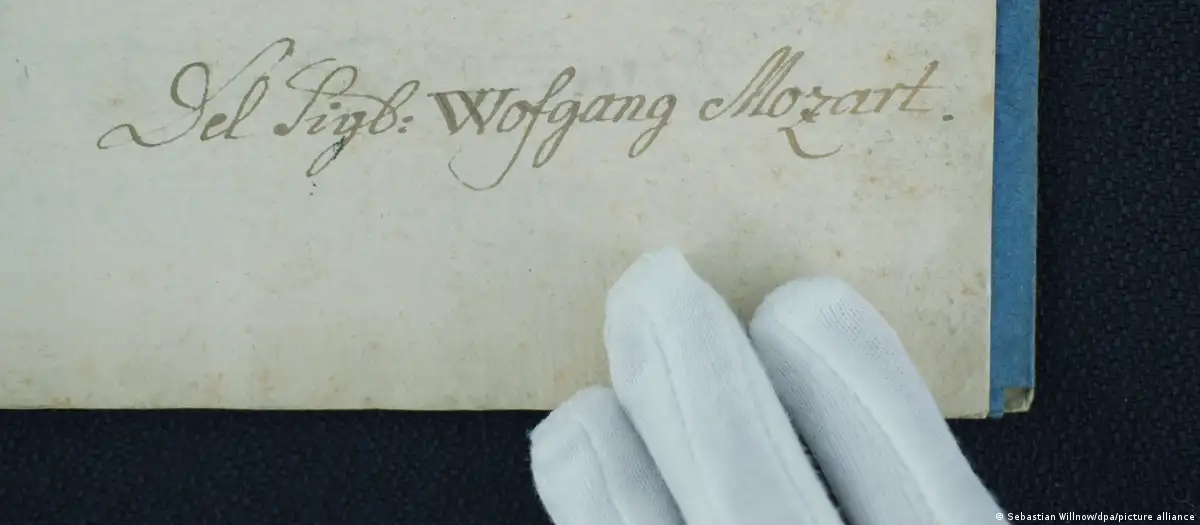 Del Sigb: Wofgang Mozart.
© Sebastian Willnow/dpa/picture alliance